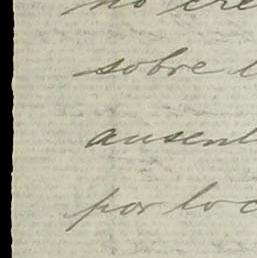 no cre
sobre l
ausent
por loc